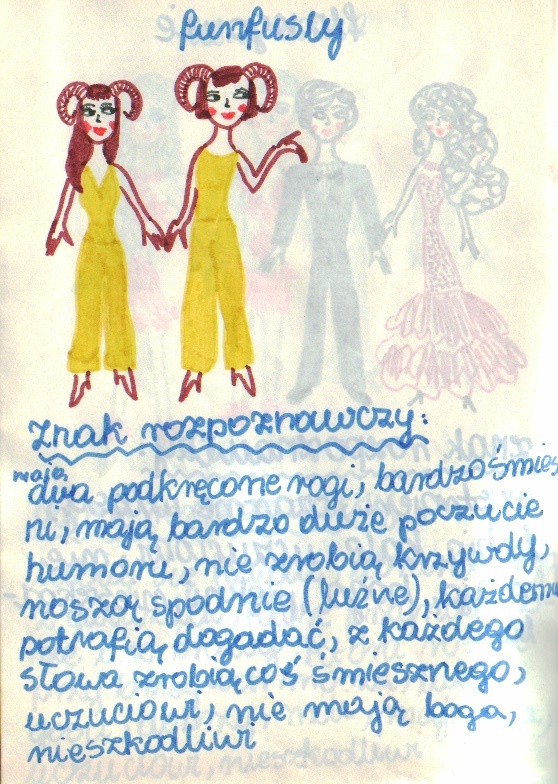 funfusly
znak rozpoznawczy:
mają
dwa podkręcone rogi, bardzo śmiesz
ni, mają bardzo duże poczucie
humoru, nie zrobią krzywdy,
noszą spodnie (luźne), każdemu
potrafią dogadać, z każdego
słowa zrobią coś śmiesznego,
uczuciowi, nie mają boga,
nieszkodliwi